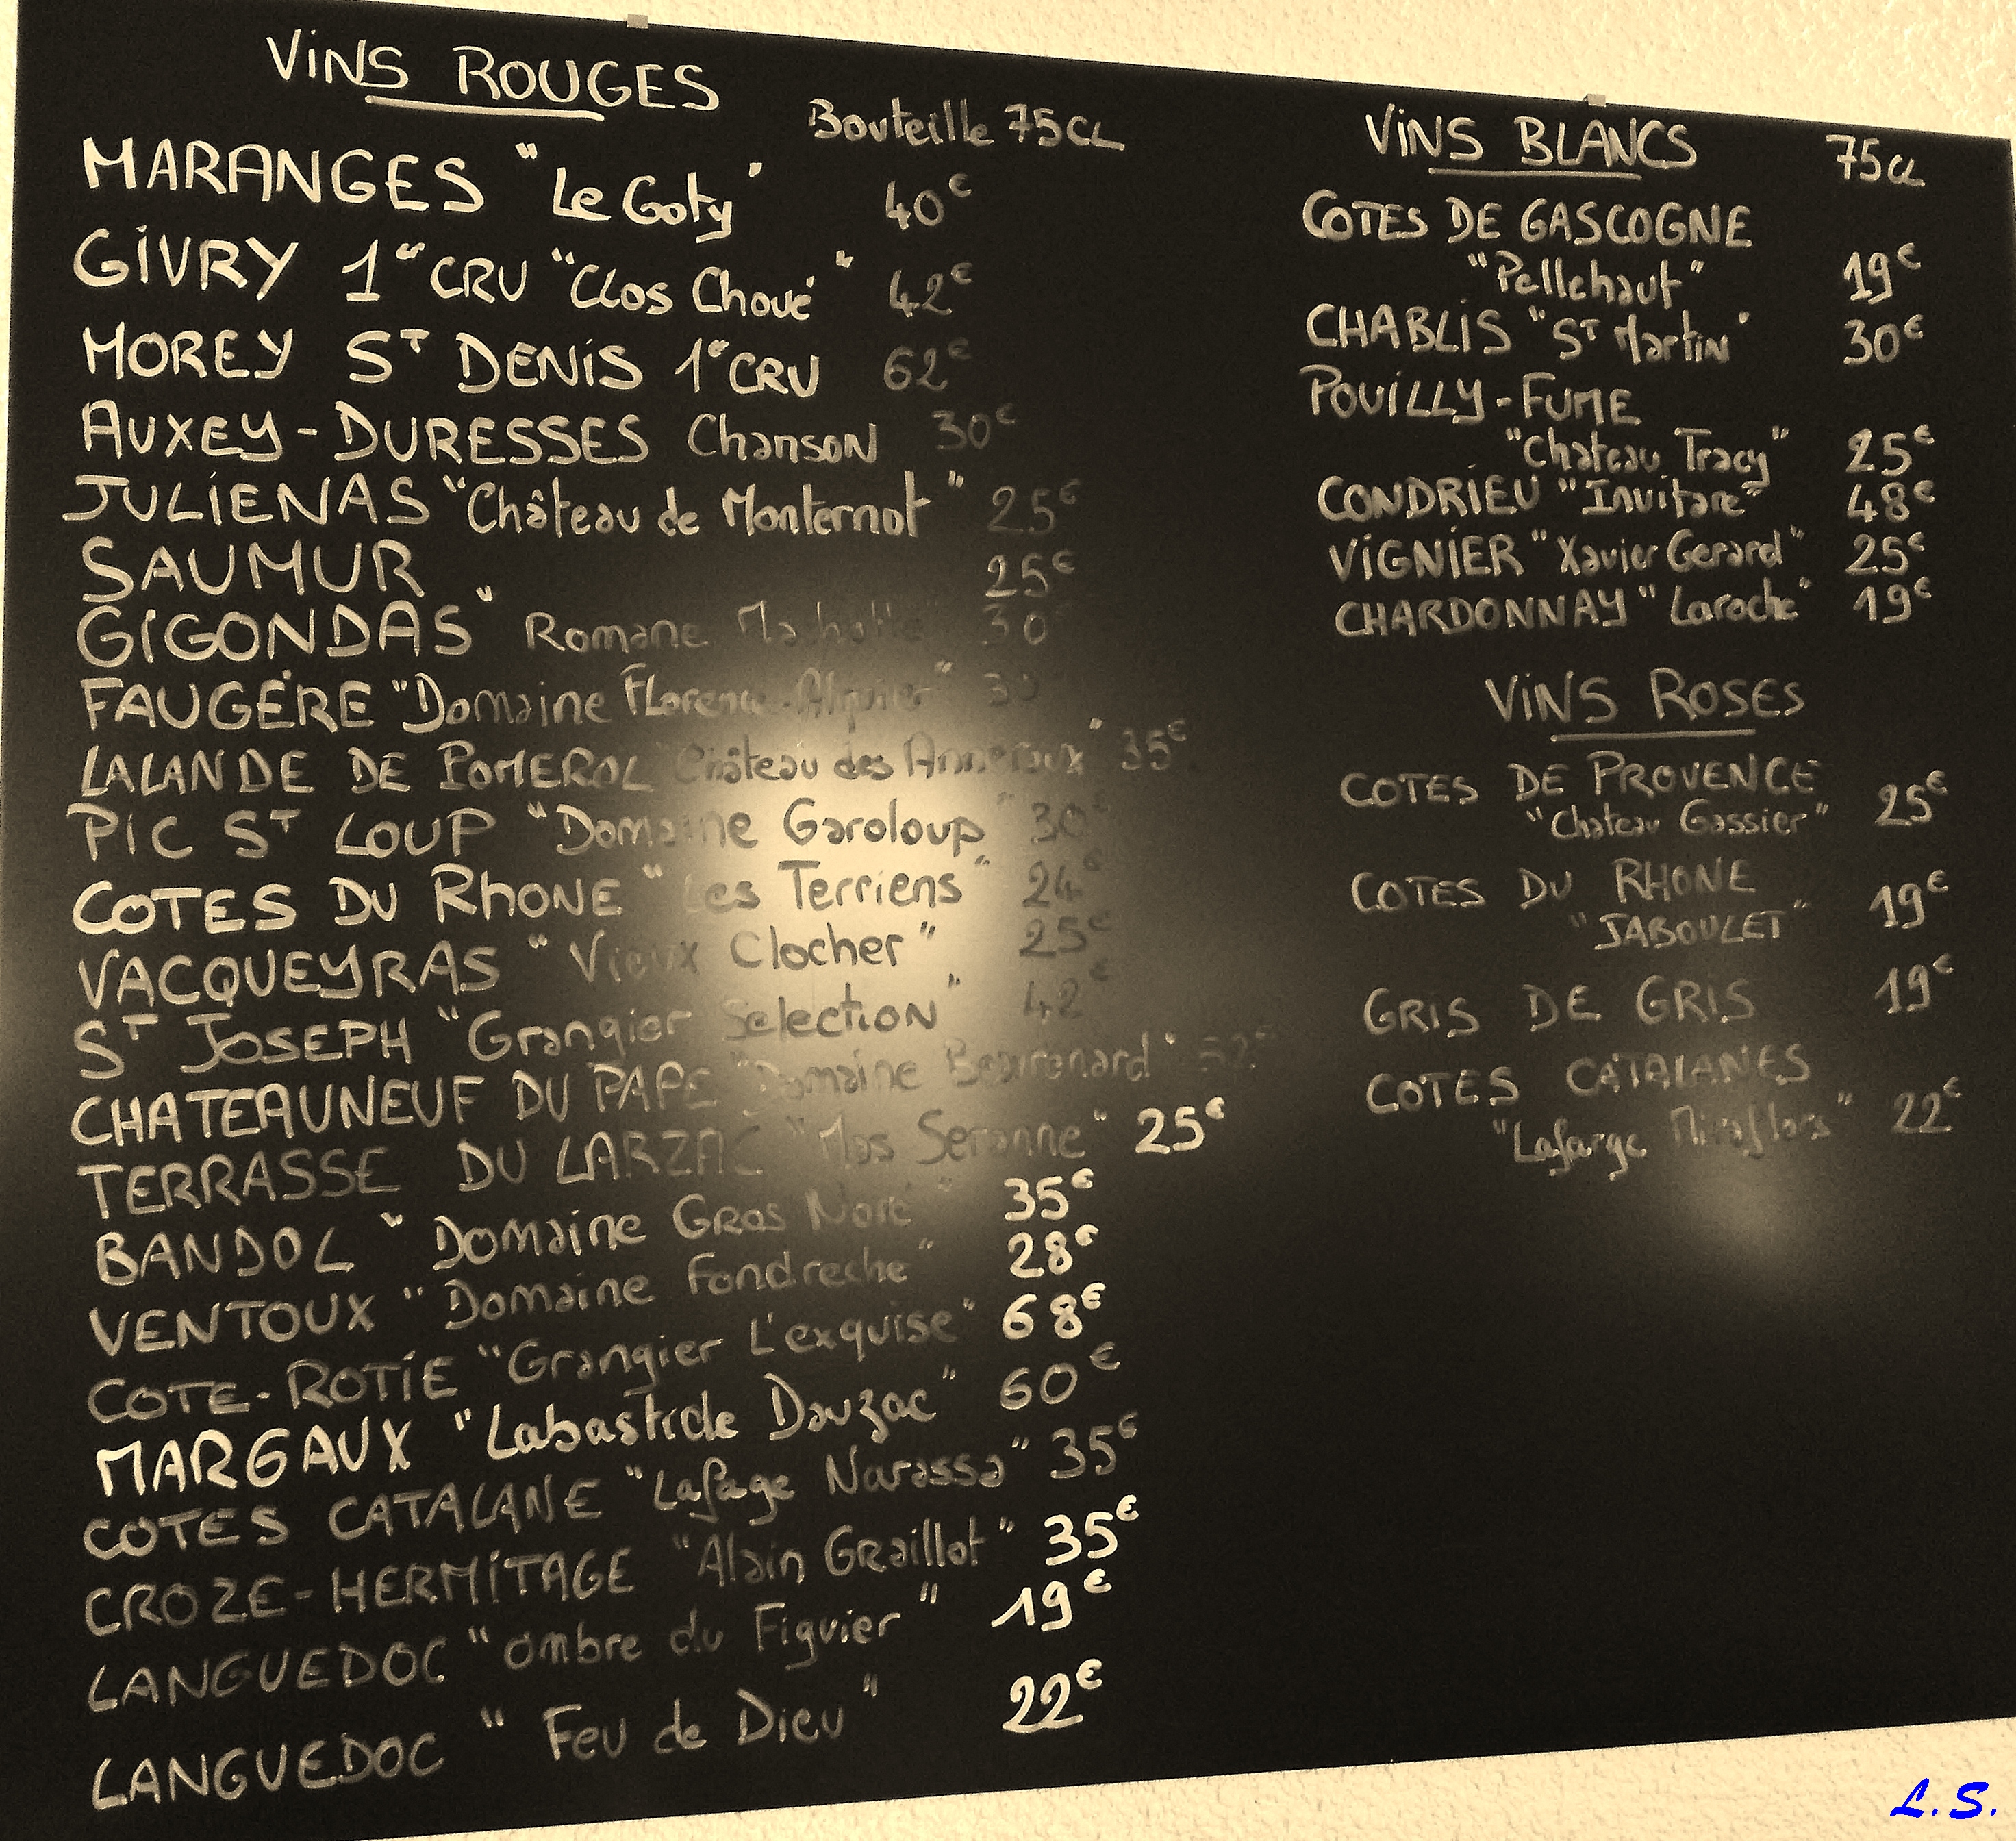 VINS ROUGES Bouteille 75CL
MARANGES "Le Goty" 40€
GIVRY 1er CRU "Clos Choué" 42€
MOREY ST DENIS 1er CRU 62€
AUXEY-DURESSES Chanson 30€
JULIENAS "Château de Monternot" 25€
SAUMUR 25€
GIGONDAS " Romane 30
FAUGÈRE "Domaine Florence Alquier" 30
LALANDE DE POMEROL Château des Annereaux" 35€
PIC ST LOUP "Domaine Garoloup" 30€
COTES DU RHONE "Les Terriens" 24€
VACQUEYRAS "Vieux Clocher" 25€
ST JOSEPH "Grangier Selection" 42€
CHATEAUNEUF DU PAPE "Domaine Beaurenard" 52€
TERRASSE DU LARZAC "Mas Seranne" 25€
BANDOL "Domaine Gros Noré" 35€
VENTOUX "Domaine Fondreche" 28€
COTE-ROTIE "Grangier L'exquise" 68€
MARGAUX "Labastide Dauzac" 60€
COTES CATALANE "Lafage Narassa" 35€
CROZE-HERMITAGE "Alain Graillot" 35€
LANGUEDOC "Ombre du Figuier" 19€
LANGUEDOC "Feu de Dieu" 22€
VINS BLANCS 75CL
COTES DE GASCOGNE
"Pellehaut" 19€
CHABLIS "ST Martin" 30€
POUILLY-FUME
"Chateau Tracy" 25€
CONDRIEU "Invitare" 48€
VIGNIER "Xavier Gerard" 25€
CHARDONNAY "Laroche" 19€
VINS ROSES
COTES DE PROVENCE
"Chateau Gassier" 25€
COTES DU RHONE
"JABOULET" 19€
GRIS DE GRIS 19€
COTES CATALANES
"Lafarge Miraflors" 22€
L.S.